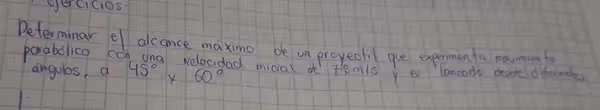 ejercicios.
Determinar el alcance máximo de un proyectil que experimenta movimiento
parabólico con una velocidad inicial de 75m/s y es lanzado desde diferentes
ángulos, a 45° y 60°
1.